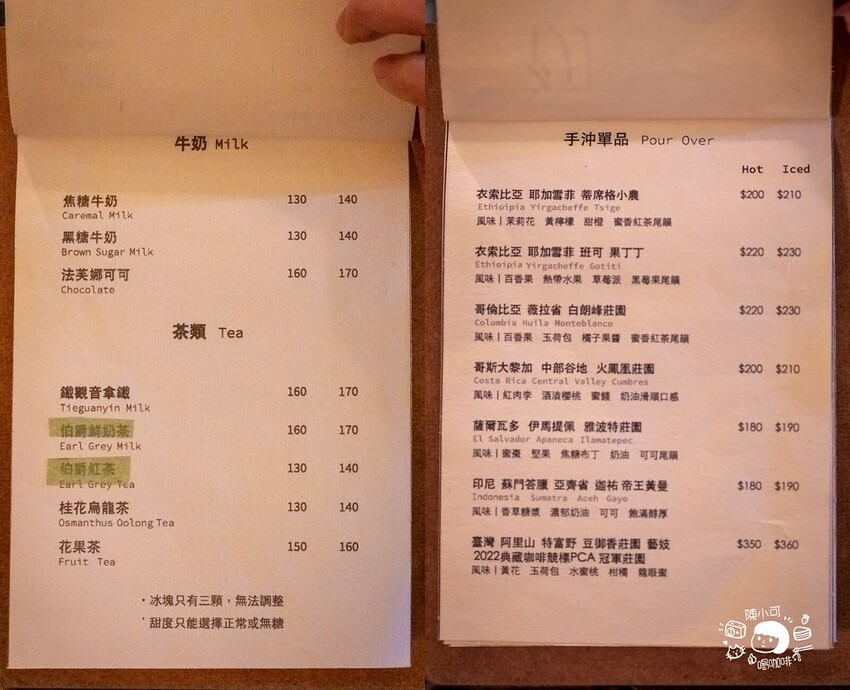 牛奶 Milk
焦糖牛奶 130 140
Caremal Milk
黑糖牛奶 130 140
Brown Sugar Milk
法芙娜可可 160 170
Chocolate
茶類 Tea
鐵觀音拿鐵 160 170
Tieguanyin Milk
伯爵鮮奶茶 160 170
Earl Grey Milk
伯爵紅茶 130 140
Earl Grey Tea
桂花烏龍茶 130 140
Osmanthus Oolong Tea
花果茶 150 160
Fruit Tea
・冰塊只有三顆，無法調整
・甜度只能選擇正常或無糖
手沖單品 Pour Over
Hot Iced
衣索比亞 耶加雪菲 蒂席格小農 $200 $210
Ethioipia Yirgacheffe Tsige
風味｜茉莉花 黃檸檬 甜橙 蜜香紅茶尾韻
衣索比亞 耶加雪菲 班可 果丁丁 $220 $230
Ethioipia Yirgacheffe Gotiti
風味｜百香果 熱帶水果 草莓派 黑莓果尾韻
哥倫比亞 薇拉省 白朗峰莊園 $220 $230
Colombia Huila Monteblanco
風味｜百香果 玉荷包 橘子果醬 蜜香紅茶尾韻
哥斯大黎加 中部谷地 火鳳凰莊園 $200 $210
Costa Rica Central Valley Cumbres
風味｜紅肉李 酒漬櫻桃 蜜餞 奶油滑順口感
薩爾瓦多 伊馬提佩 雅波特莊園 $180 $190
El Salvador Apaneca Ilamatepec
風味｜蜜棗 堅果 焦糖布丁 奶油 可可尾韻
印尼 蘇門答臘 亞齊省 迦祐 帝王黃曼 $180 $190
Indonesia Sumatra Aceh Gayo
風味｜香草糖漿 濃郁奶油 可可 飽滿醇厚
臺灣 阿里山 特富野 豆御香莊園 藝妓 $350 $360
2022典藏咖啡競標PCA 冠軍莊園
風味｜黃花 玉荷包 水蜜桃 柑橘 龍眼蜜
陳小可
喝咖啡